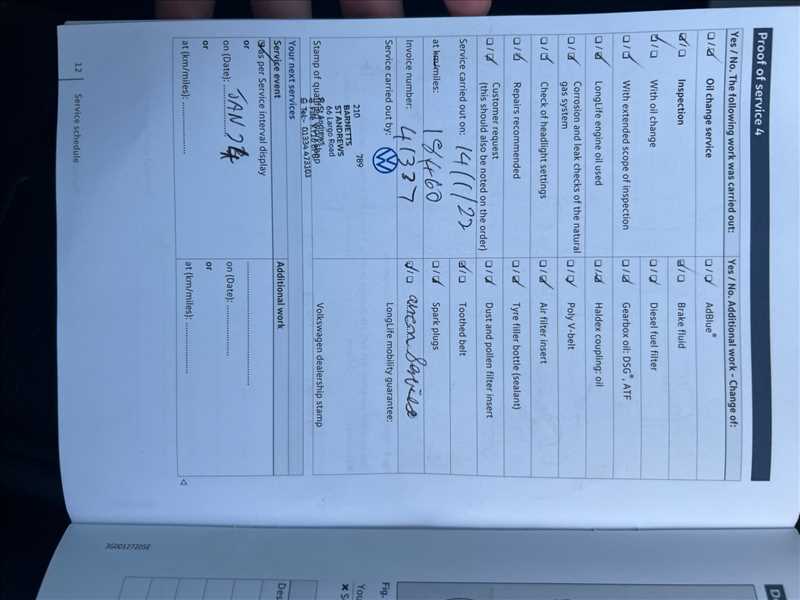 Proof of service 4
Yes / No. The following work was carried out:
Oil change service
Inspection
With oil change
With extended scope of inspection
LongLife engine oil used
Corrosion and leak checks of the natural
gas system
Check of headlight settings
Repairs recommended
Customer request
(this should also be noted on the order)
Service carried out on: 14/1/22
at km/miles: 18460
Invoice number: 41337
Service carried out by:
210 789
BARNETTS
ST ANDREWS
66 Largo Road
Tel:- 01334 473103
Stamp of
Your next services
Service event
as per Service interval display
or
on (Date): JAN 24
or
at (km/miles):
Yes / No. Additional work - Change of:
AdBlue®
Brake fluid
Diesel fuel filter
Gearbox oil: DSG®, ATF
Haldex coupling: oil
Poly V-belt
Air filter insert
Tyre filler bottle (sealant)
Dust and pollen filter insert
Toothed belt
Spark plugs
Service
LongLife mobility guarantee:
Volkswagen dealership stamp
Additional work
on (Date):
or
at (km/miles):
12 Service schedule
3G0012720SE
Fig.
You